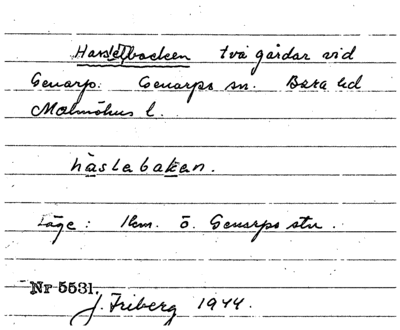 Hasselbacken två gårdar vid
Genarp: Genarps sn. Bara hd
Malmöhus l.
häslabakan.
Läge: 1 km. ö. Genarps stn.
Nr 5531.
J. Friberg 1944.